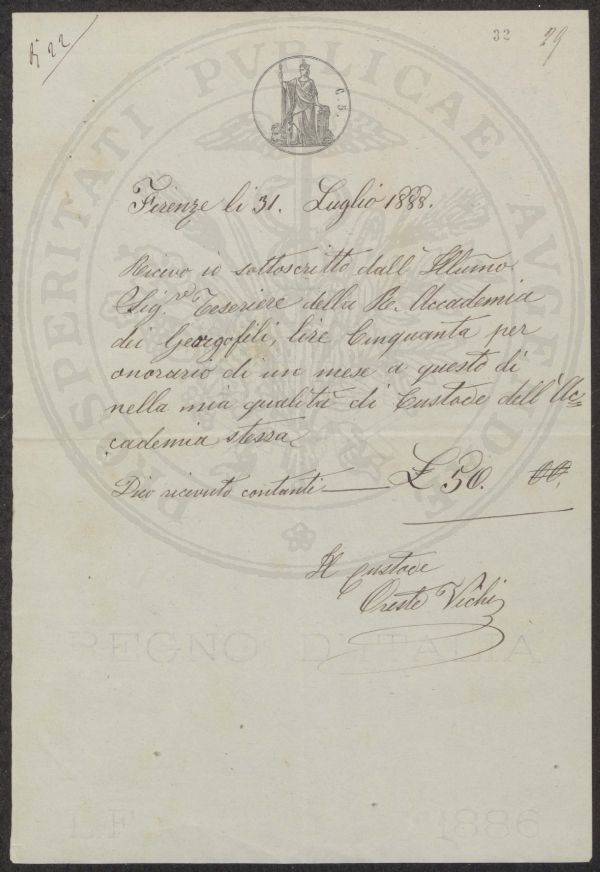 N 22
32 29
PROSPERITATI PVBLICAE AVGENDAE
C. 5.
Firenze li 31. Luglio 1888.
Ricevo io sottoscritto dall' Illumo.
Sig.re Teseriere della Re. Accademia
dei Georgofili, lire Cinquanta per
onorario di un mese a questo dì
nella mia qualità di Custode dell' Ac=
cademia stessa
Dico ricevuto contanti — £ 50. 00.
Il custode
Oreste Vichi
REGNO D'ITALIA
L.F. 1886